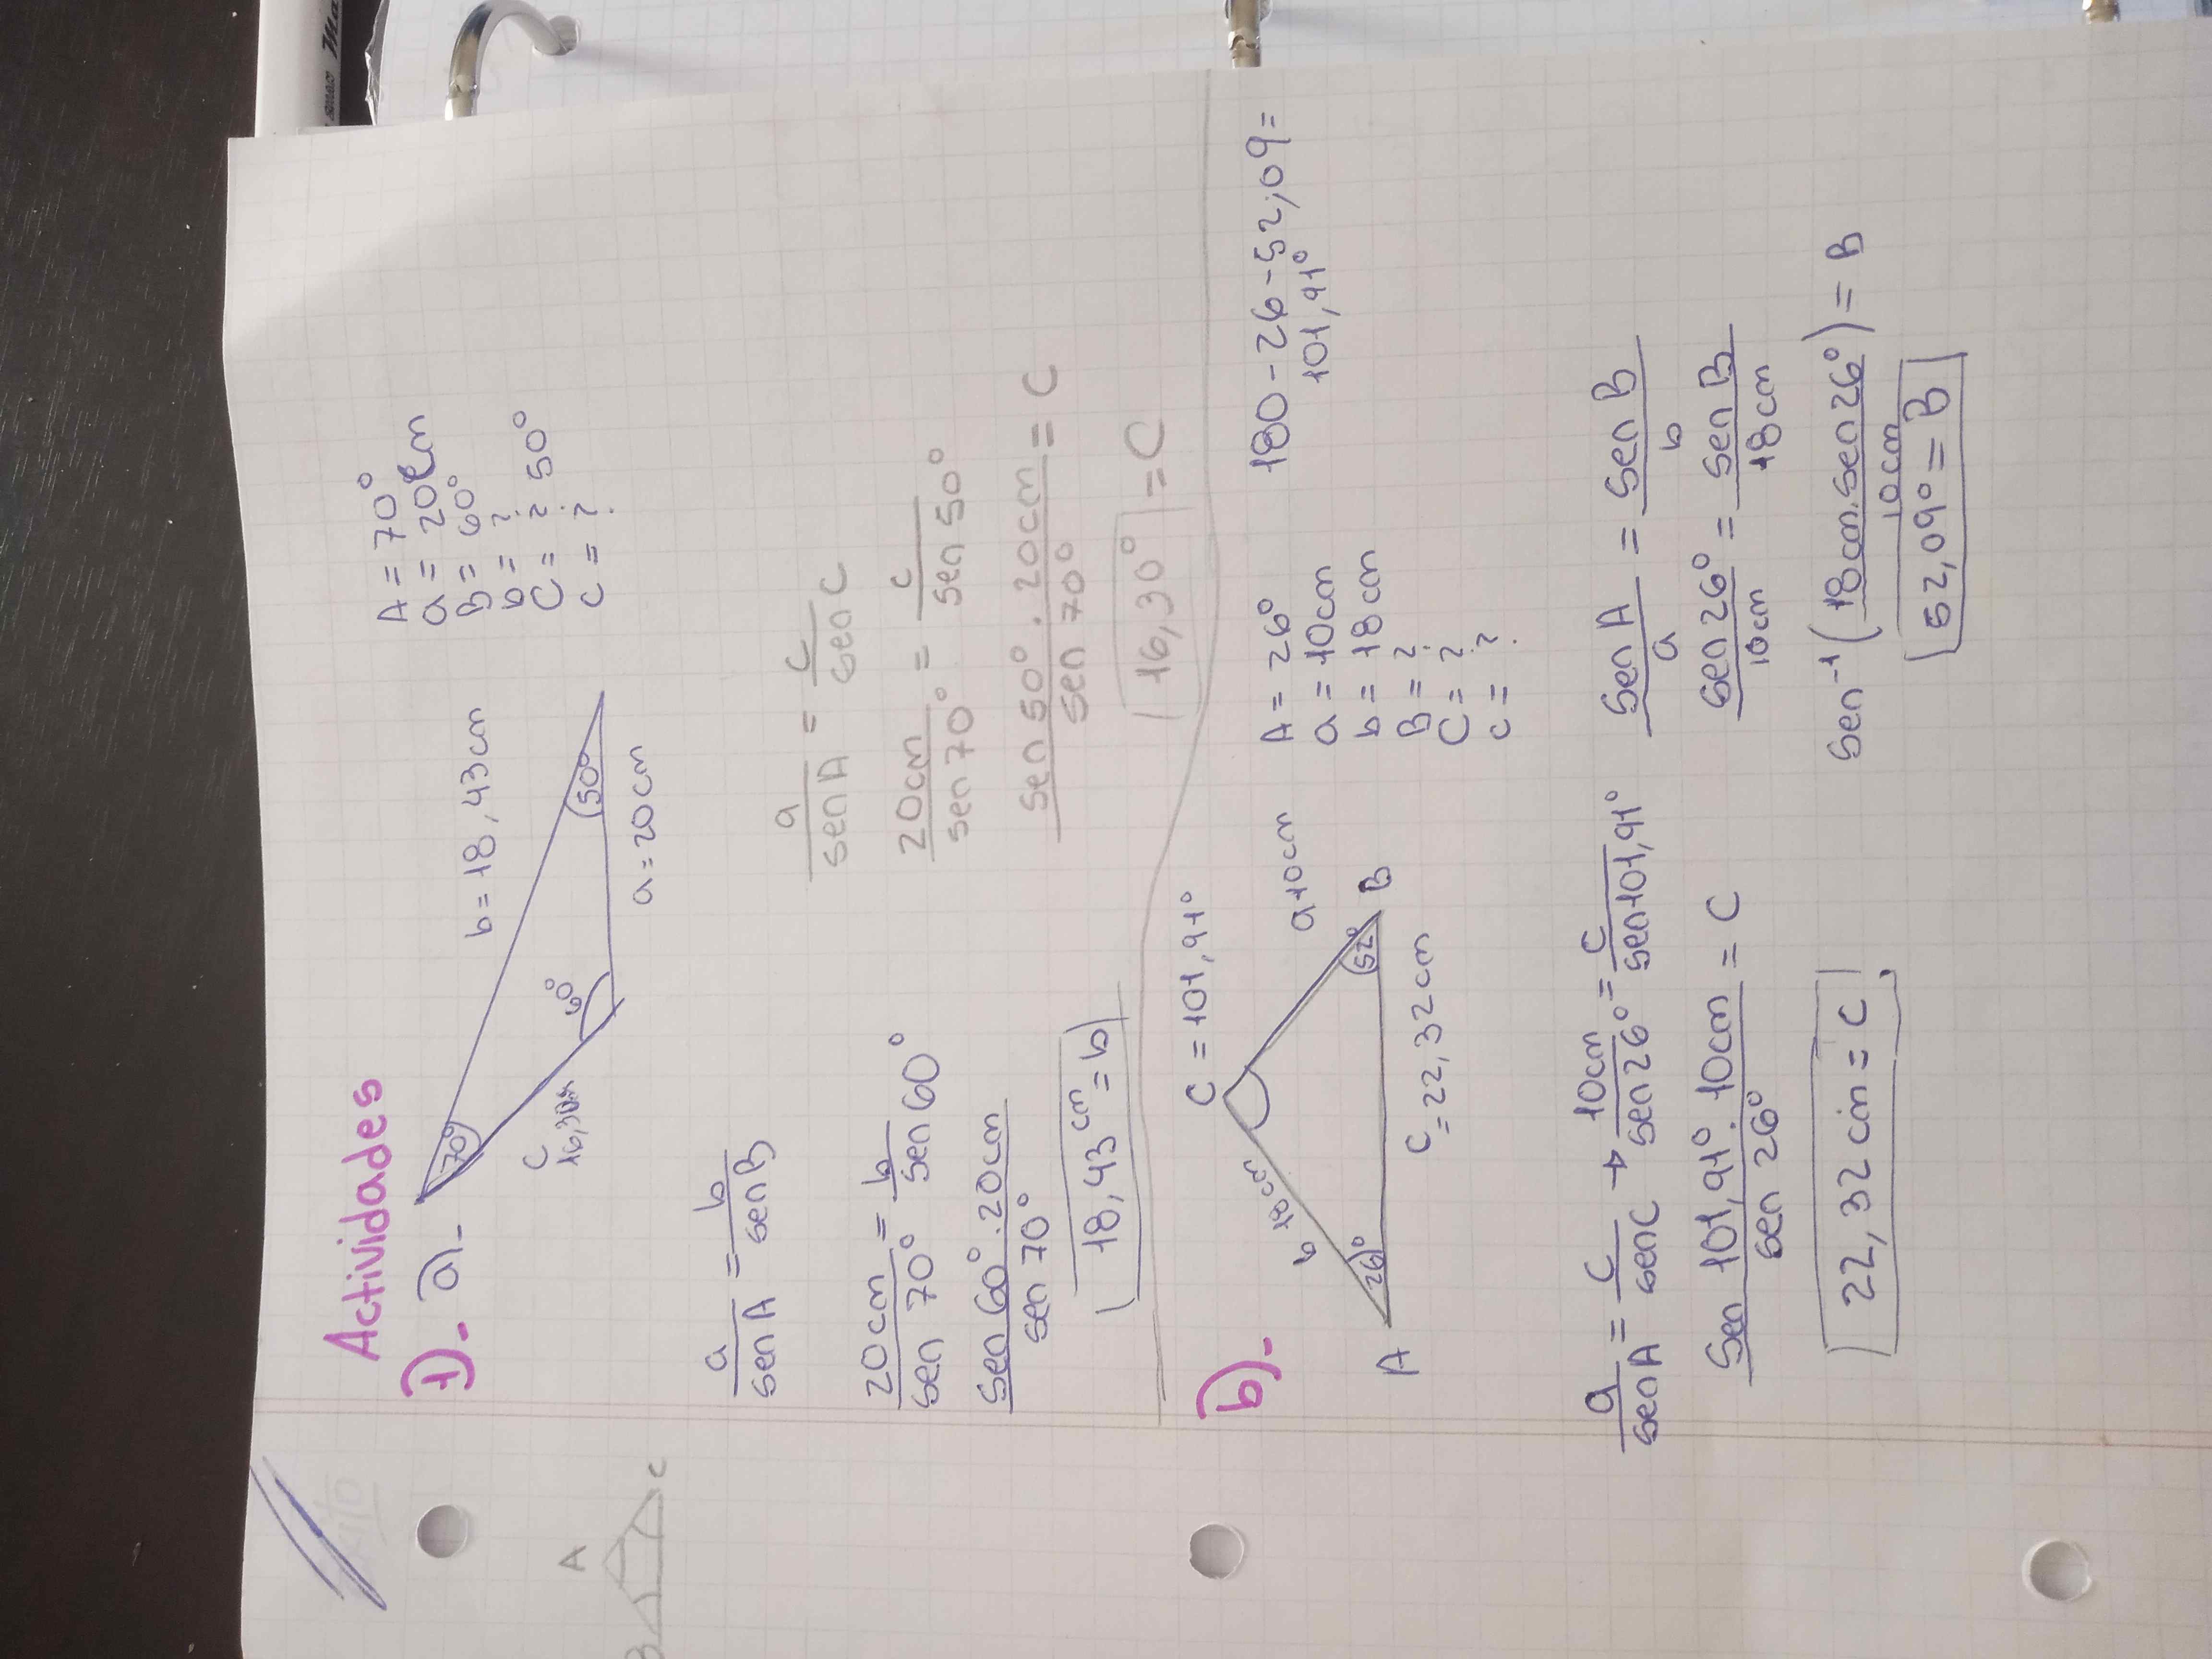 Actividades
1).- a).-
b = 18,43cm
70°
60°
50°
c
16,30cm
a = 20cm
A = 70°
a = 20cm
B = 60°
b = ?
C = ? 50°
c = ?
a/sen A = b/sen B
20cm/sen 70° = b/sen 60°
sen 60° . 20cm/sen 70°
18,43 cm = b
a/sen A = c/sen C
20cm/sen 70° = c/sen 50°
sen 50° . 20cm/sen 70° = C
16,30° = C
A
B
C
b).-
C = 101,91°
b 18cm
a 10cm
A
26°
52°
B
c = 22,32cm
A = 26°
a = 10cm
b = 18cm
B = ?
C = ?
c = ?
180 - 26 - 52,09 =
101,91°
a/sen A = c/sen C → 10cm/sen 26° = c/sen 101,91°
sen 101,91° . 10cm/sen 26° = C
22,32 cm = C
sen A/a = sen B/b
sen 26°/10cm = sen B/18cm
sen⁻¹ (18cm . sen 26°/10cm) = B
52,09° = B